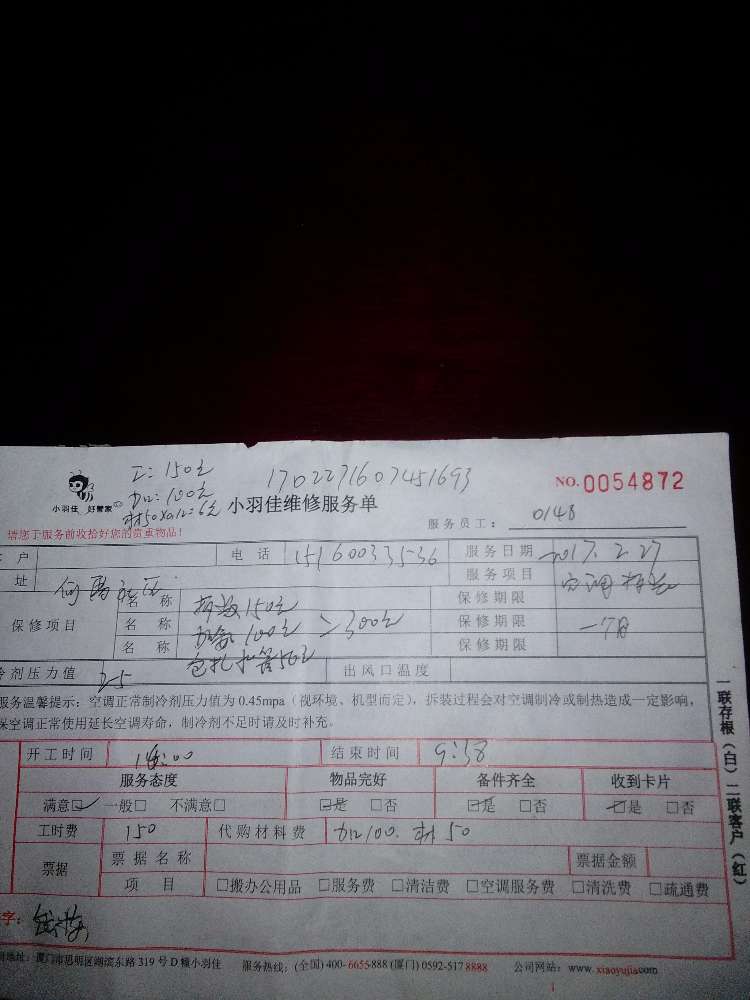 工:150元
加:100元
材50×0.12=6元
1702271607451693
NO.0054872
小羽佳 好管家
小羽佳维修服务单
服务员工: 0148
请您于服务前收拾好您的贵重物品!
户 电话 15160033536 服务日期 2017.2.27
址 何厝社区 服务项目 空调拆装
保修项目 名称 拆装150元 保修期限
名称 加氟100元 >300元 保修期限 一个月
名称 包扎扎管50元 保修期限
冷剂压力值 出风口温度
服务温馨提示:空调正常制冷剂压力值为0.45mpa(视环境、机型而定),拆装过程会对空调制冷或制热造成一定影响,
保空调正常使用延长空调寿命,制冷剂不足时请及时补充。
开工时间 结束时间 9:38
服务态度 物品完好 备件齐全 收到卡片
满意☑ 一般□ 不满意□ ☑是 □否 ☑是 □否 ☑是 □否
工时费 150 代购材料费 加100.材50
票据 票据名称 票据金额
项目 □搬办公用品 □服务费 □清洁费 □空调服务费 □清洗费 □疏通费
字:
地址:厦门市思明区湖滨东路319号D幢小羽佳 服务热线:(全国)400-6655888(厦门)0592-5178888 公司网站:www.xiaoyujia.com
一联存根(白)二联客户(红)